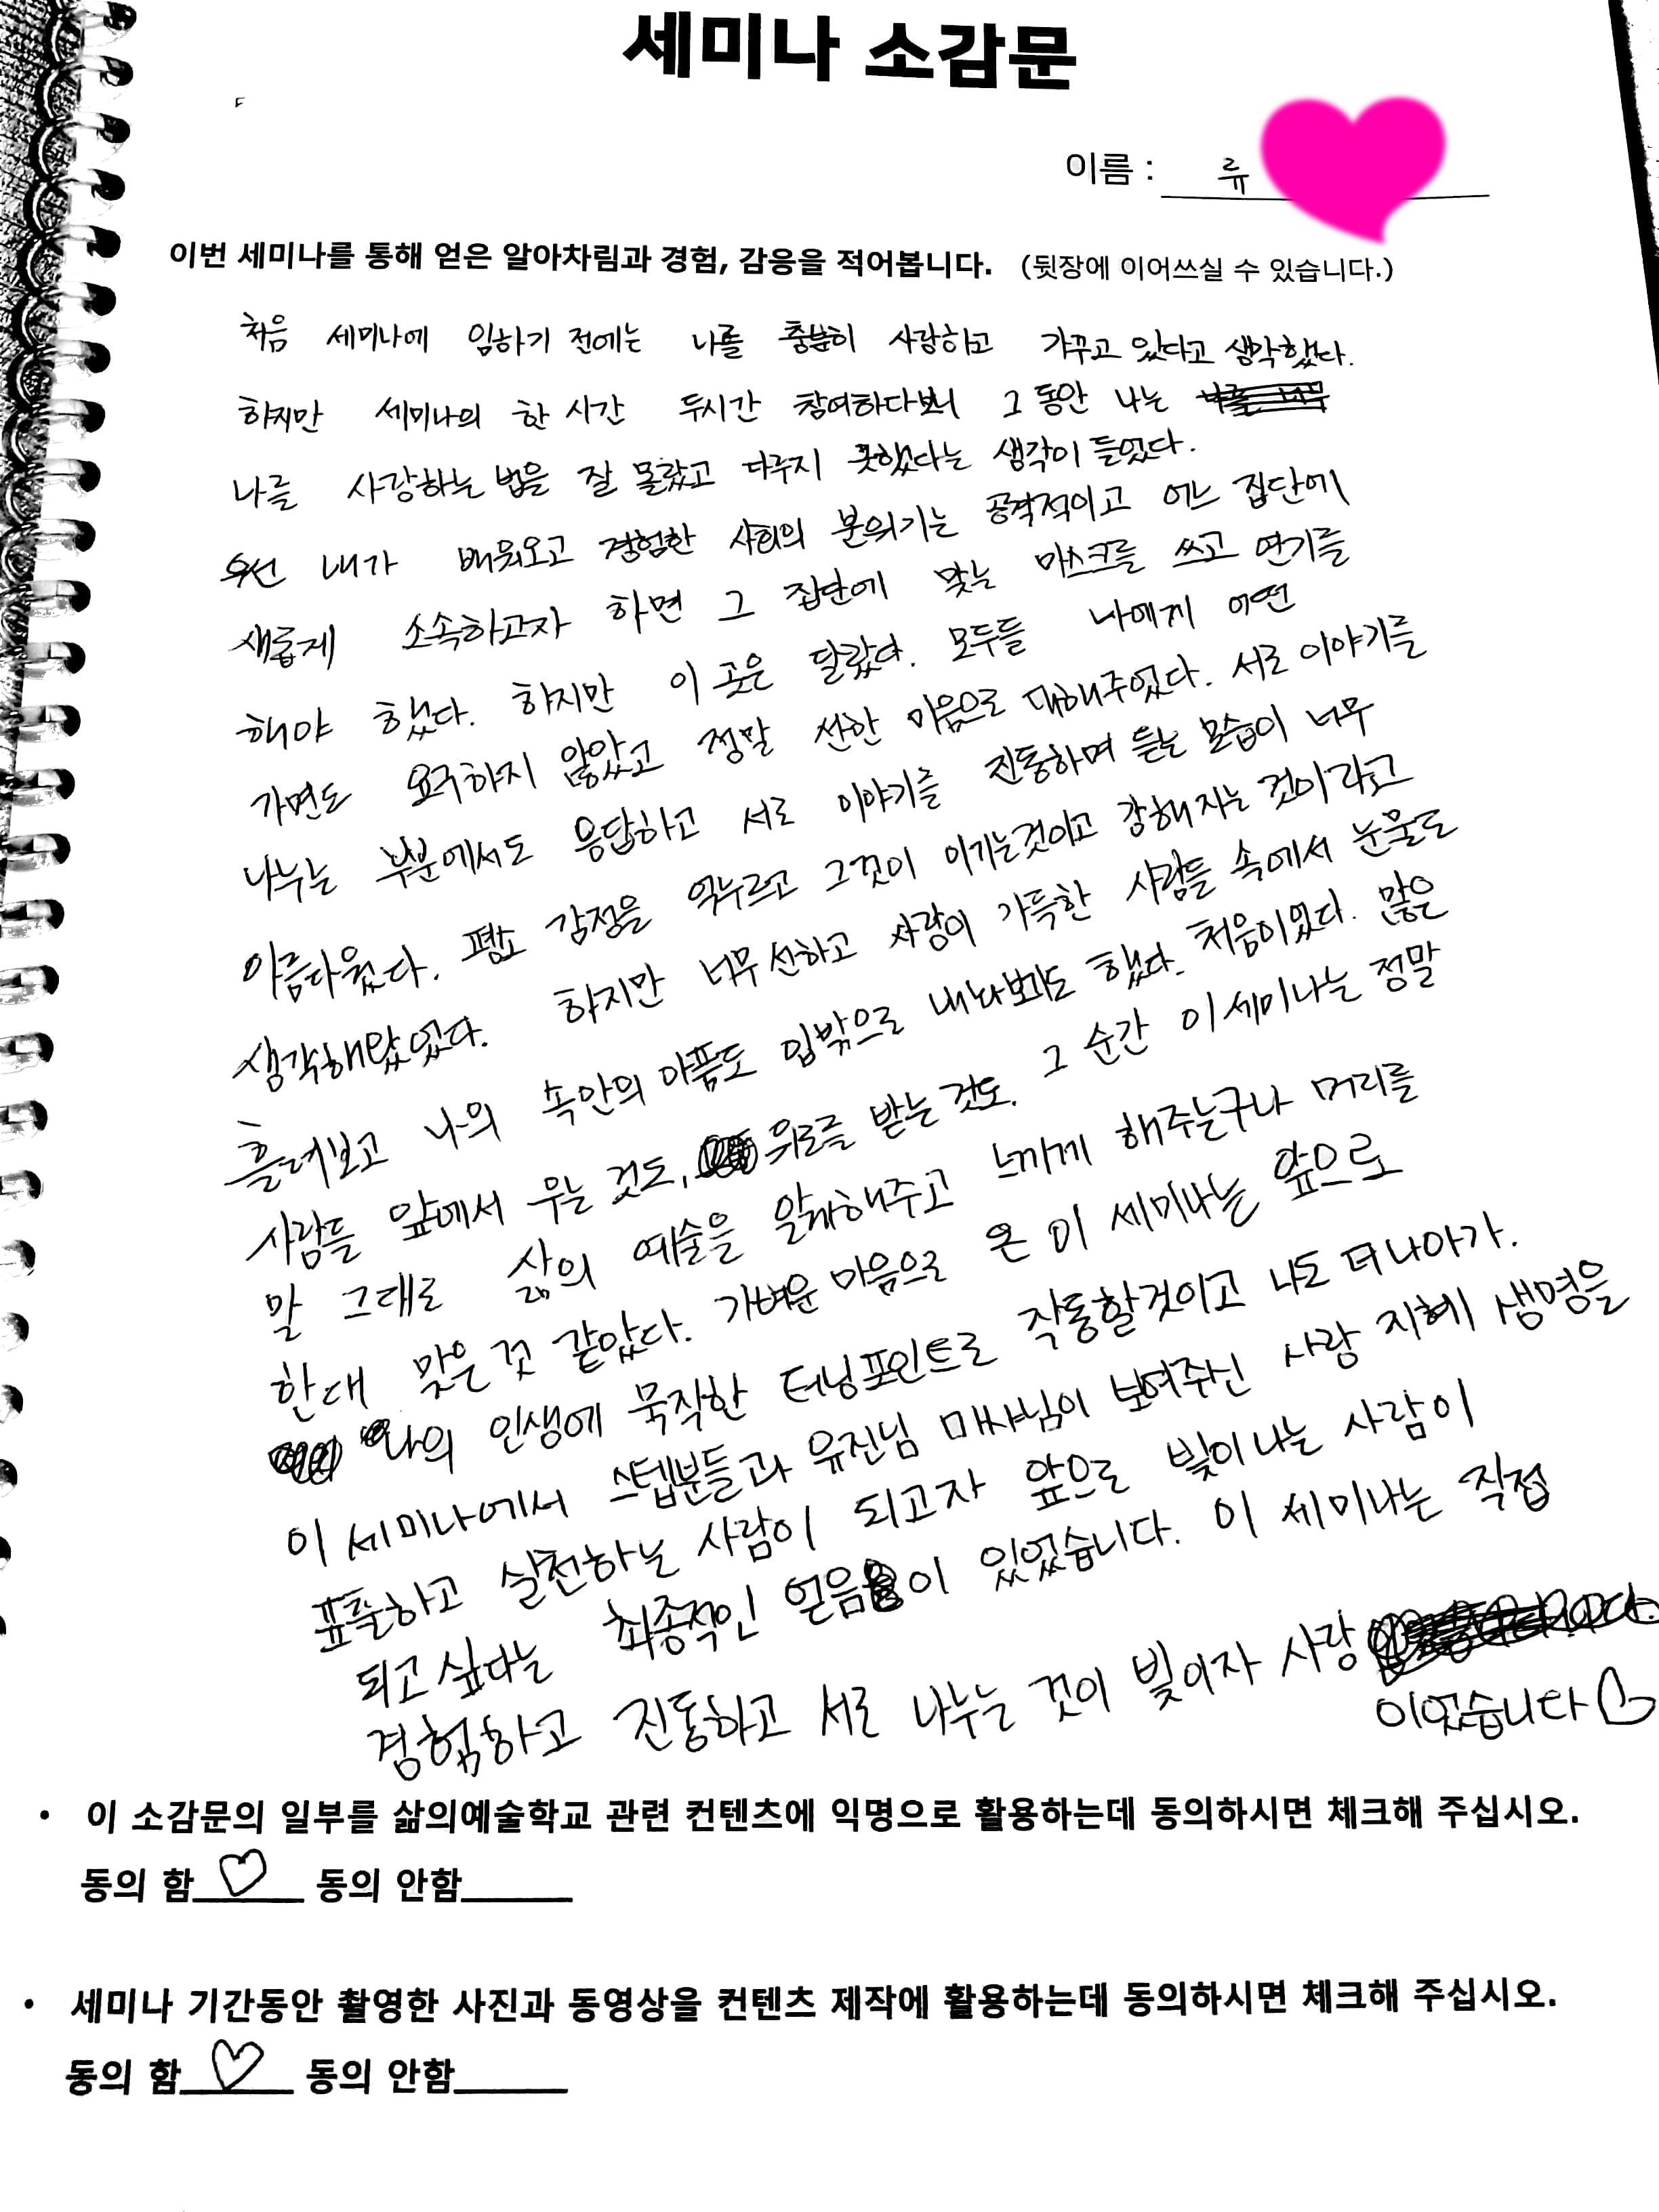 세미나 소감문
이름 : 류
이번 세미나를 통해 얻은 알아차림과 경험, 감응을 적어봅니다. (뒷장에 이어쓰실 수 있습니다.)
처음 세미나에 임하기 전에는 나를 충분히 사랑하고 가꾸고 있다고 생각했다.
하지만 세미나의 한 시간 두시간 참여하다보니 그 동안 나는
나를 사랑하는 법을 잘 몰랐고 다루지 못했다는 생각이 들었다.
우선 내가 배워오고 경험한 사회의 분위기는 공격적이고 어느 집단에
새롭게 소속하고자 하면 그 집단에 맞는 마스크를 쓰고 연기를
해야 했다. 하지만 이 곳은 달랐다. 모두들 나에게 어떤
가면도 요구하지 않았고 정말 선한 마음으로 대해주었다. 서로 이야기를
나누는 부분에서도 응답하고 서로 이야기를 진동하며 듣는 모습이 너무
아름다웠다. 평소 감정을 억누르고 그것이 이기는것이고 강해지는 것이라고
생각해왔었다. 하지만 너무 선하고 사랑이 가득한 사람들 속에서 눈물도
흘려보고 나의 속안의 아픔도 입밖으로 내놔보기도 했다. 처음이었다. 많은
사람들 앞에서 우는 것도, 위로를 받는 것도. 그 순간 이 세미나는 정말
말 그대로 삶의 예술을 알게해주고 느끼게 해주는구나 머리를
한대 맞은 것 같았다. 가벼운 마음으로 온 이 세미나는 앞으로
나의 인생에 묵직한 터닝포인트로 작동할것이고 나도 더 나아가.
이 세미나에서 스텝분들과 유진님 마샤님이 보여주신 사랑 지혜 생명을
표출하고 실천하는 사람이 되고자 앞으로 빛이나는 사람이
되고싶다는 최종적인 얻음이 있었습니다. 이 세미나는 직접
경험하고 진동하고 서로 나누는 것이 빛이자 사랑
이었습니다♡
• 이 소감문의 일부를 삶의예술학교 관련 컨텐츠에 익명으로 활용하는데 동의하시면 체크해 주십시오.
동의 함 ♡ 동의 안함
• 세미나 기간동안 촬영한 사진과 동영상을 컨텐츠 제작에 활용하는데 동의하시면 체크해 주십시오.
동의 함 ♡ 동의 안함